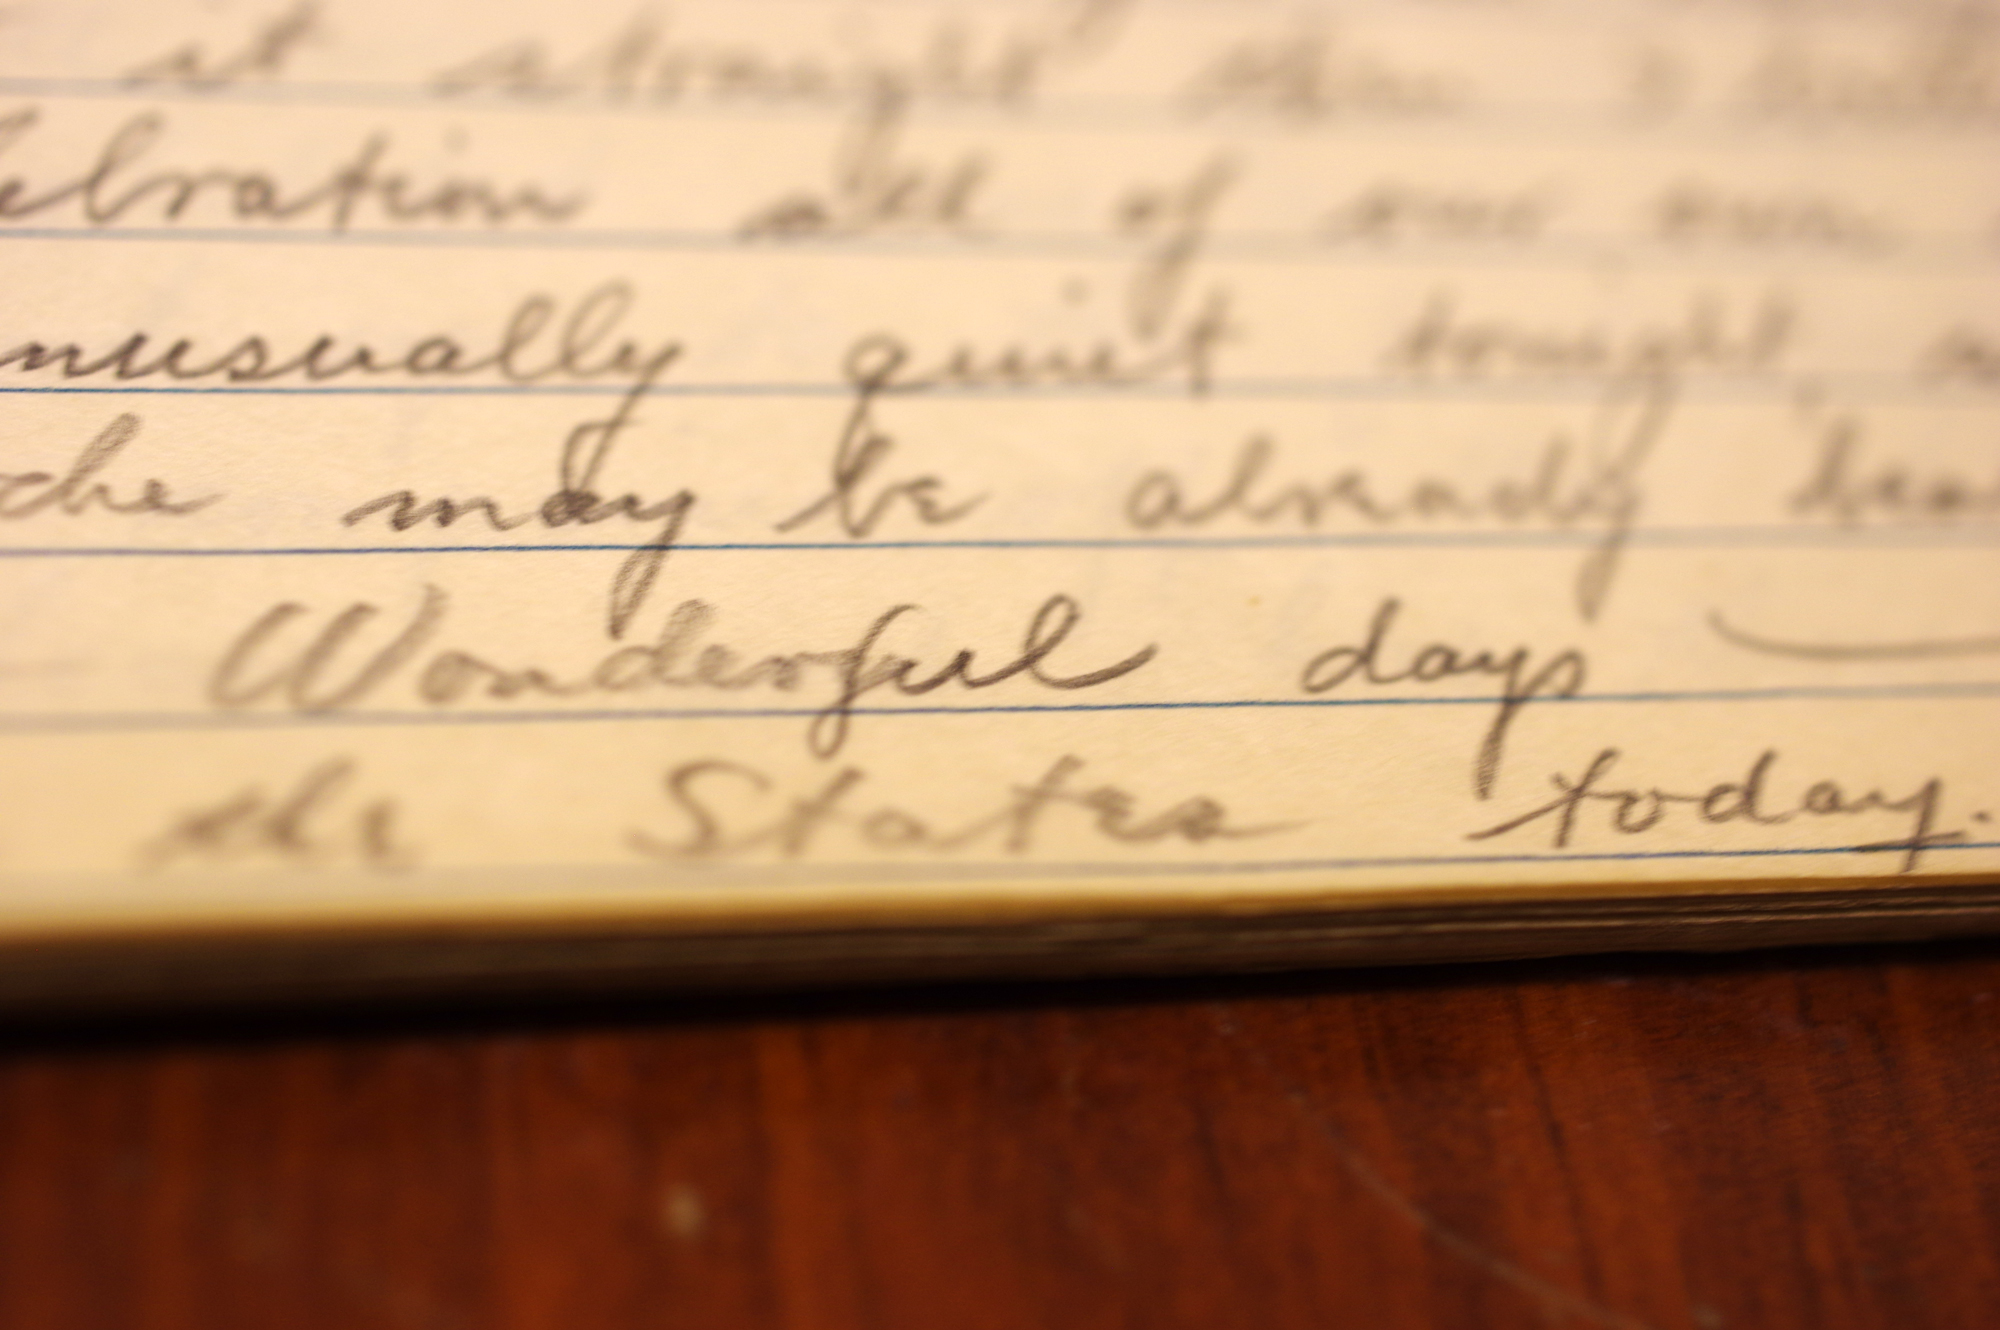 it straight then I
lebration all of our own
nusually quiet tonight
che may be already
Wonderful days —
the States today.